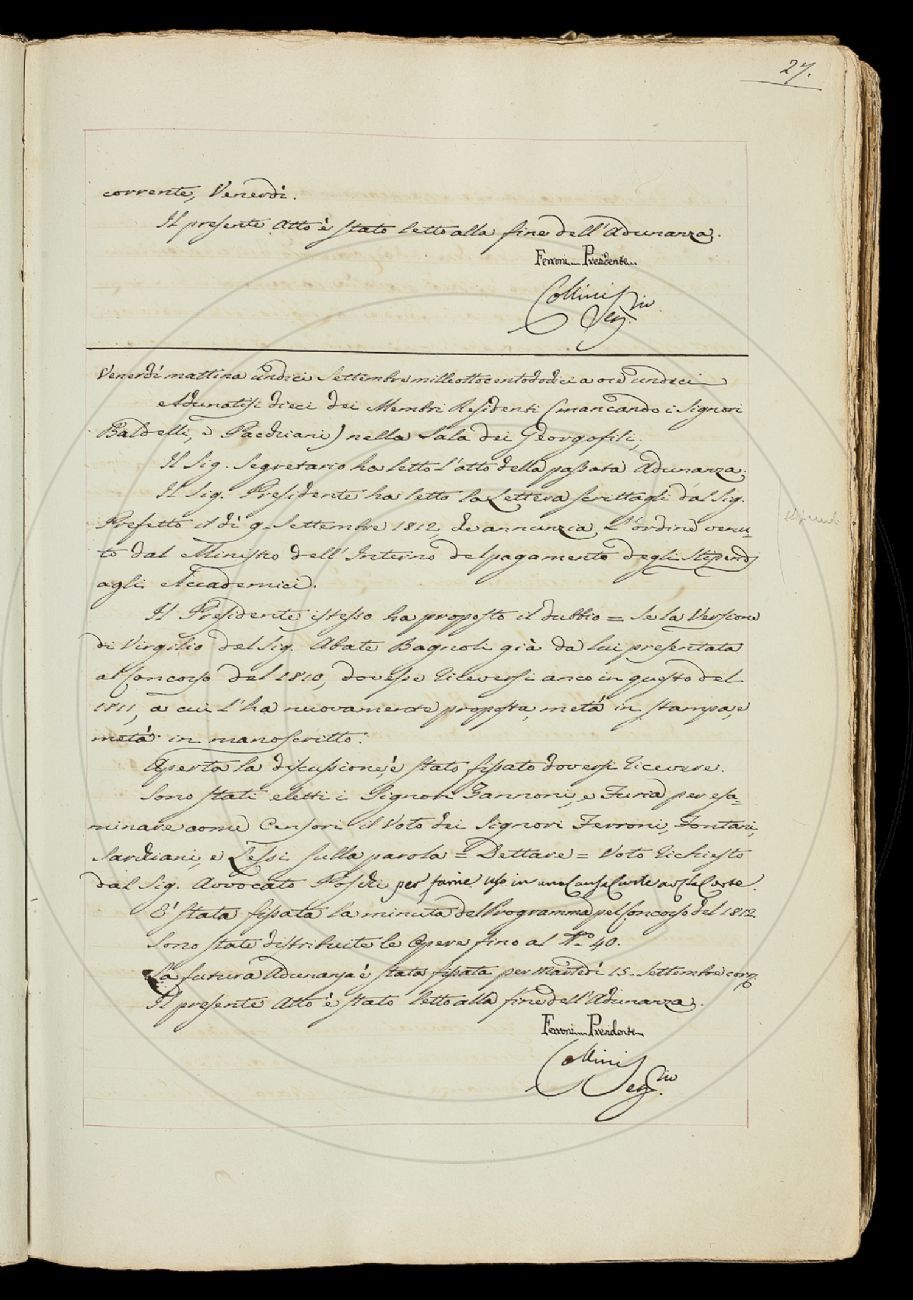 27.
corrente, Venerdì.
Il presente Atto è stato letto alla fine dell'Adunanza.
Ferroni Presidente
Collini Seg.rio
Venerdì mattina undici Settembre milleottocentododici a ore undici
Adunatisi dieci dei Membri Residenti (mancando i Signori
Baldelli, e Pacchiani) nella Sala dei Georgofili,
Il Sig. Segretario ha letto l'atto della passata Adunanza.
Il Sig. Presidente ha letto la Lettera scrittagli dal Sig.
Prefetto il dì 9. Settembre 1812, che annunzia l'ordine venu-
to dal Ministro dell'Interno del pagamento degli Stipendj
agli Accademici.
Il Presidente istesso ha proposto il dubbio = se la Versione
di Virgilio del Sig. Abate Bagnoli già da lui presentata
al Concorso del 1810, dovesse riceversi anco in questo del
1811, a cui l'ha nuovamente proposta, metà in stampa, e
metà in manoscritto.
Aperta la discussione, è stato fissato doversi ricevere.
Sono stati eletti i Signori Zannoni, e Furia per esa-
minare come Censori il Voto dei Signori Ferroni, Fontani,
Sarchiani, e Lessi sulla parola = Dettare = Voto richiesto
dal Sig. Avvocato per farne uso in una Causa
È stata fissata la minuta del Programma pel Concorso del 1812
Sono state distribuite le Opere fino al N.o 40.
La futura Adunanza è stata fissata per Martedì 15. Settembre corr.
Il presente Atto è stato letto alla fine dell'Adunanza.
Ferroni Presidente
Collini Seg.rio